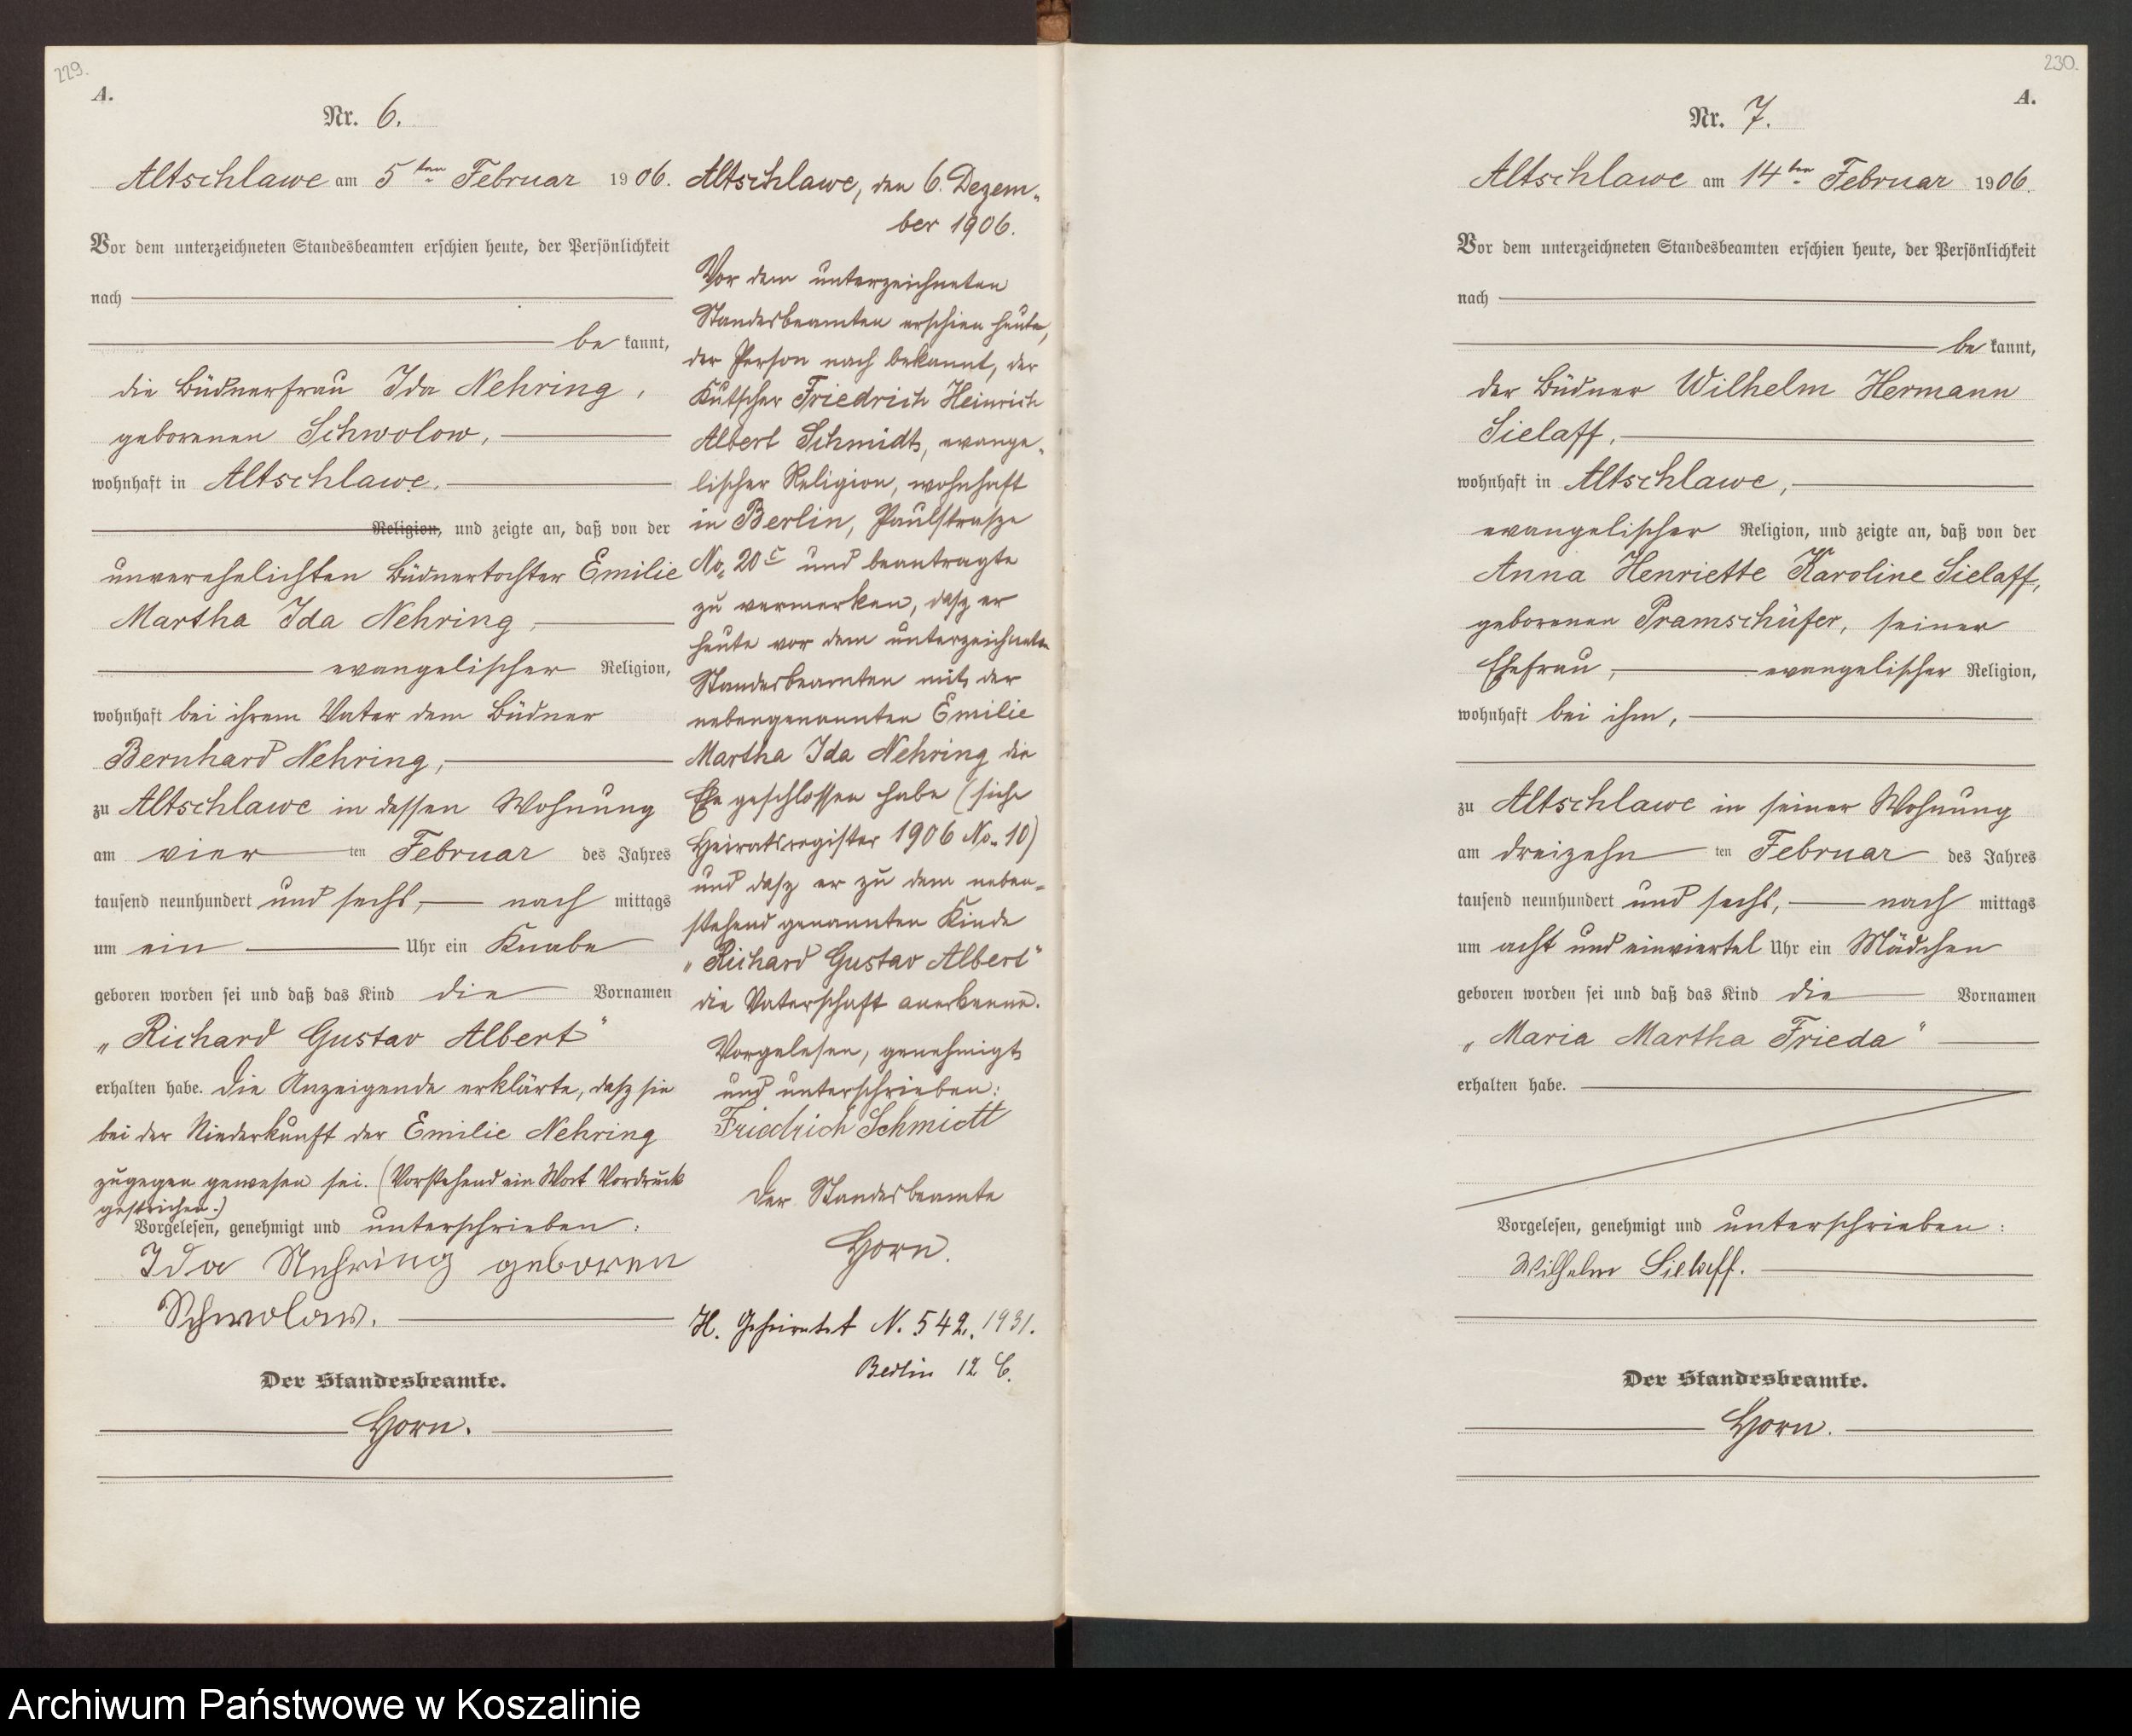 229.
A.
Nr. 6.
Altschlawe am 5ten Februar 1906.
Vor dem unterzeichneten Standesbeamten erschien heute, der Persönlichkeit
nach
be kannt,
die Büdnerfrau Ida Nehring,
geborenen Schwolow,
wohnhaft in Altschlawe,
Religion, und zeigte an, daß von der
unverehelichten Büdnertochter Emilie
Martha Ida Nehring,
evangelischer Religion,
wohnhaft bei ihrem Vater dem Büdner
Bernhard Nehring,
zu Altschlawe in dessen Wohnung
am vier ten Februar des Jahres
tausend neunhundert und sechs, nach mittags
um ein Uhr ein Knabe
geboren worden sei und daß das Kind die Vornamen
„Richard Gustav Albert"
erhalten habe. Die Anzeigende erklärte, dasz sie
bei der Niederkunft der Emilie Nehring
zugegen gewesen sei. (Vorstehend ein Wort Vordruck
gestrichen.)
Vorgelesen, genehmigt und unterschrieben:
Ida Nehring geboren
Schwolow.
Der Standesbeamte.
Horn.
Altschlawe, den 6. Dezem-
ber 1906.
Vor dem unterzeichneten
Standesbeamten erschien heute,
der Person nach bekannt, der
Kutscher Friedrich Heinrich
Albert Schmidt, evange-
lischer Religion, wohnhaft
in Berlin, Paulstrasze
No. 20c und beantragte
zu vermerken, dasz er
heute vor dem unterzeichneten
Standesbeamten mit der
nebengenannten Emilie
Martha Ida Nehring die
Ehe geschlossen habe (siehe
Heiratsregister 1906 No. 10)
und dasz er zu dem neben-
stehend genannten Kinde
„Richard Gustav Albert"
die Vaterschaft anerkenne.
Vorgelesen, genehmigt
und unterschrieben:
Friedrich Schmidt
Der Standesbeamte
Horn.
H. Geheiratet N. 542. 1931.
Berlin 12 C.
230.
A.
Nr. 7.
Altschlawe am 14ten Februar 1906.
Vor dem unterzeichneten Standesbeamten erschien heute, der Persönlichkeit
nach
be kannt,
der Büdner Wilhelm Hermann
Sielaff,
wohnhaft in Altschlawe,
evangelischer Religion, und zeigte an, daß von der
Anna Henriette Karoline Sielaff,
geborenen Pramschüfer, seiner
Ehefrau, evangelischer Religion,
wohnhaft bei ihm,
zu Altschlawe in seiner Wohnung
am dreizehn ten Februar des Jahres
tausend neunhundert und sechs, nach mittags
um acht und einviertel Uhr ein Mädchen
geboren worden sei und daß das Kind die Vornamen
„Maria Martha Frieda"
erhalten habe.
Vorgelesen, genehmigt und unterschrieben:
Wilhelm Sielaff.
Der Standesbeamte.
Horn.
Archiwum Państwowe w Koszalinie